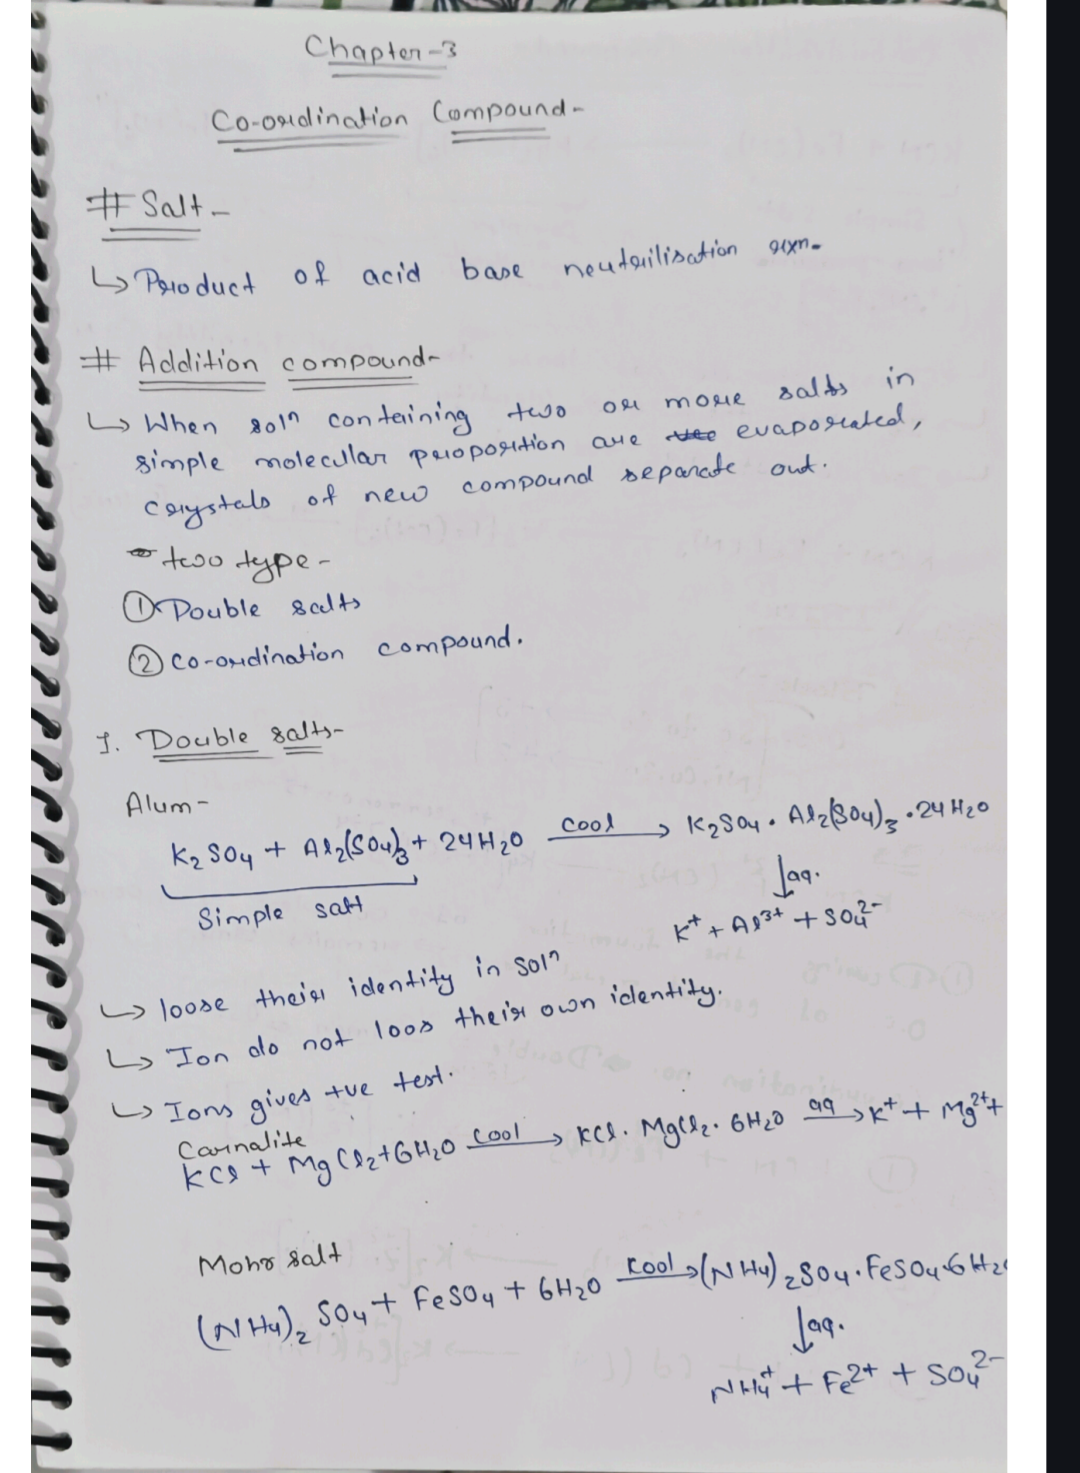 Chapter-3
Co-ordination Compound-
# Salt-
↳ Product of acid base neutrilisation rxn-
# Addition compound-
↳ When solⁿ containing two or more salts in
simple molecular proportion are evaporated,
crystals of new compound separate out.
two type-
① Double salts
② Co-ordination compound.
1. Double salts-
Alum-
K₂SO₄ + Al₂(SO₄)₃ + 24H₂O cool → K₂SO₄ · Al₂(SO₄)₃ · 24H₂O
Simple salt
↓aq.
K⁺ + Al³⁺ + SO₄²⁻
↳ loose their identity in solⁿ
↳ Ion do not loos their own identity.
↳ Ions gives +ve test.
Carnalite
KCl + MgCl₂ + 6H₂O cool → KCl · MgCl₂ · 6H₂O aq → K⁺ + Mg²⁺ +
Mohr salt
(NH₄)₂SO₄ + FeSO₄ + 6H₂O Kool → (NH₄)₂SO₄ · FeSO₄ · 6H₂O
↓aq.
NH₄⁺ + Fe²⁺ + SO₄²⁻